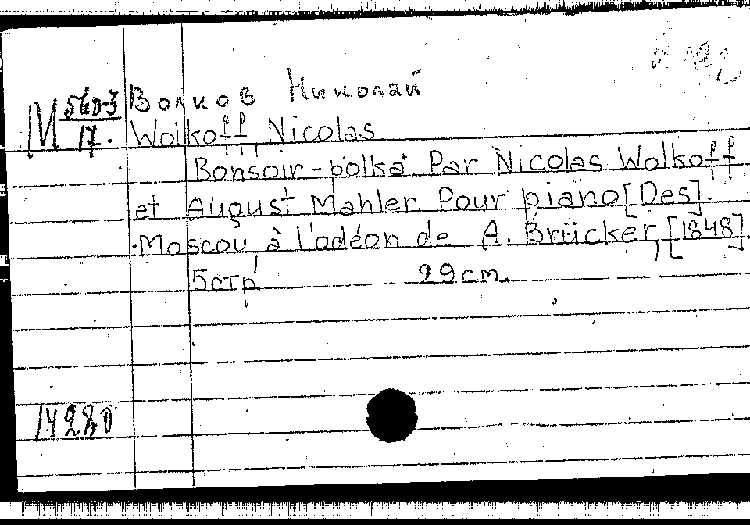 M 560-3/17.
Волков Николай
Wolkoff Nicolas
Bonsoir-polka Par Nicolas Wolkoff
et August Mahler Pour piano [Des].
Moscou, à l'odéon de A. Brücker, [1848].
5 стр 29 cm.
14280